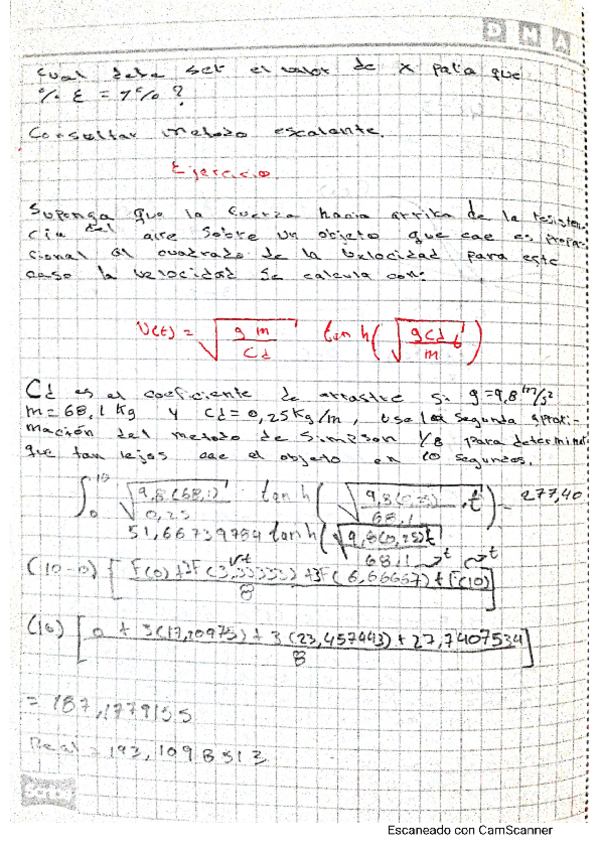 DNA
Cual debe ser el valor de x para que
% ε = 1% ?
Consultar metodo escalante.
Ejercicio
Suponga que la fuerza hacia arriba de la resisten-
cia del aire sobre un objeto que cae es propor-
cional al cuadrado de la velocidad para este
caso la velocidad se calcula con:
V(t) = √(g m / Cd) tanh(√(g Cd / m) t)
Cd es el coeficiente de arrastre si g=9,8 m/s²
m=68,1 Kg y Cd=0,25 Kg/m, usa la segunda aproxi-
mación del metodo de Simpson 1/8 para determinar
que tan lejos cae el objeto en 10 segundos.
∫₀¹⁰ √(9,8(68,1) / 0,25) tanh(√(9,8(0,25) / 68,1) · t) = 277,40
51,66739784 tanh(√(9,8(0,25)t / 68,1)
(10-0) [F(0)+3F(3,33333)+3F(6,66667)+F(10) / 8]
(10) [0 + 3(17,10975) + 3(23,457443) + 27,7407534 / 8]
= 187,1779155
Real = 193,1098513
Scribe
Escaneado con CamScanner